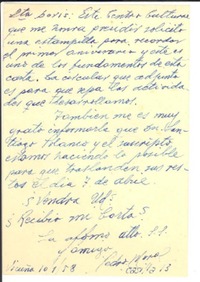 Doris: Este Centro Cultural
que me honra presidir solicitó
una estampilla para recordar
el primer aniversario y este es
uno de los fundamentos de esta
carta. La circular que adjunto
es para que sepa las activida
des que desarrollamos.
También me es muy
grato informarla que en San
tiago Polanco y el suscripto
estamos haciendo lo posible
para que trasladen sus res
tos el día 7 de abril
¿Vendrá Ud?
¿Recibió mi carta?
Su afmo. atto. S.S.
y amigo
Vicuña 10.1.58 Pedro Moral